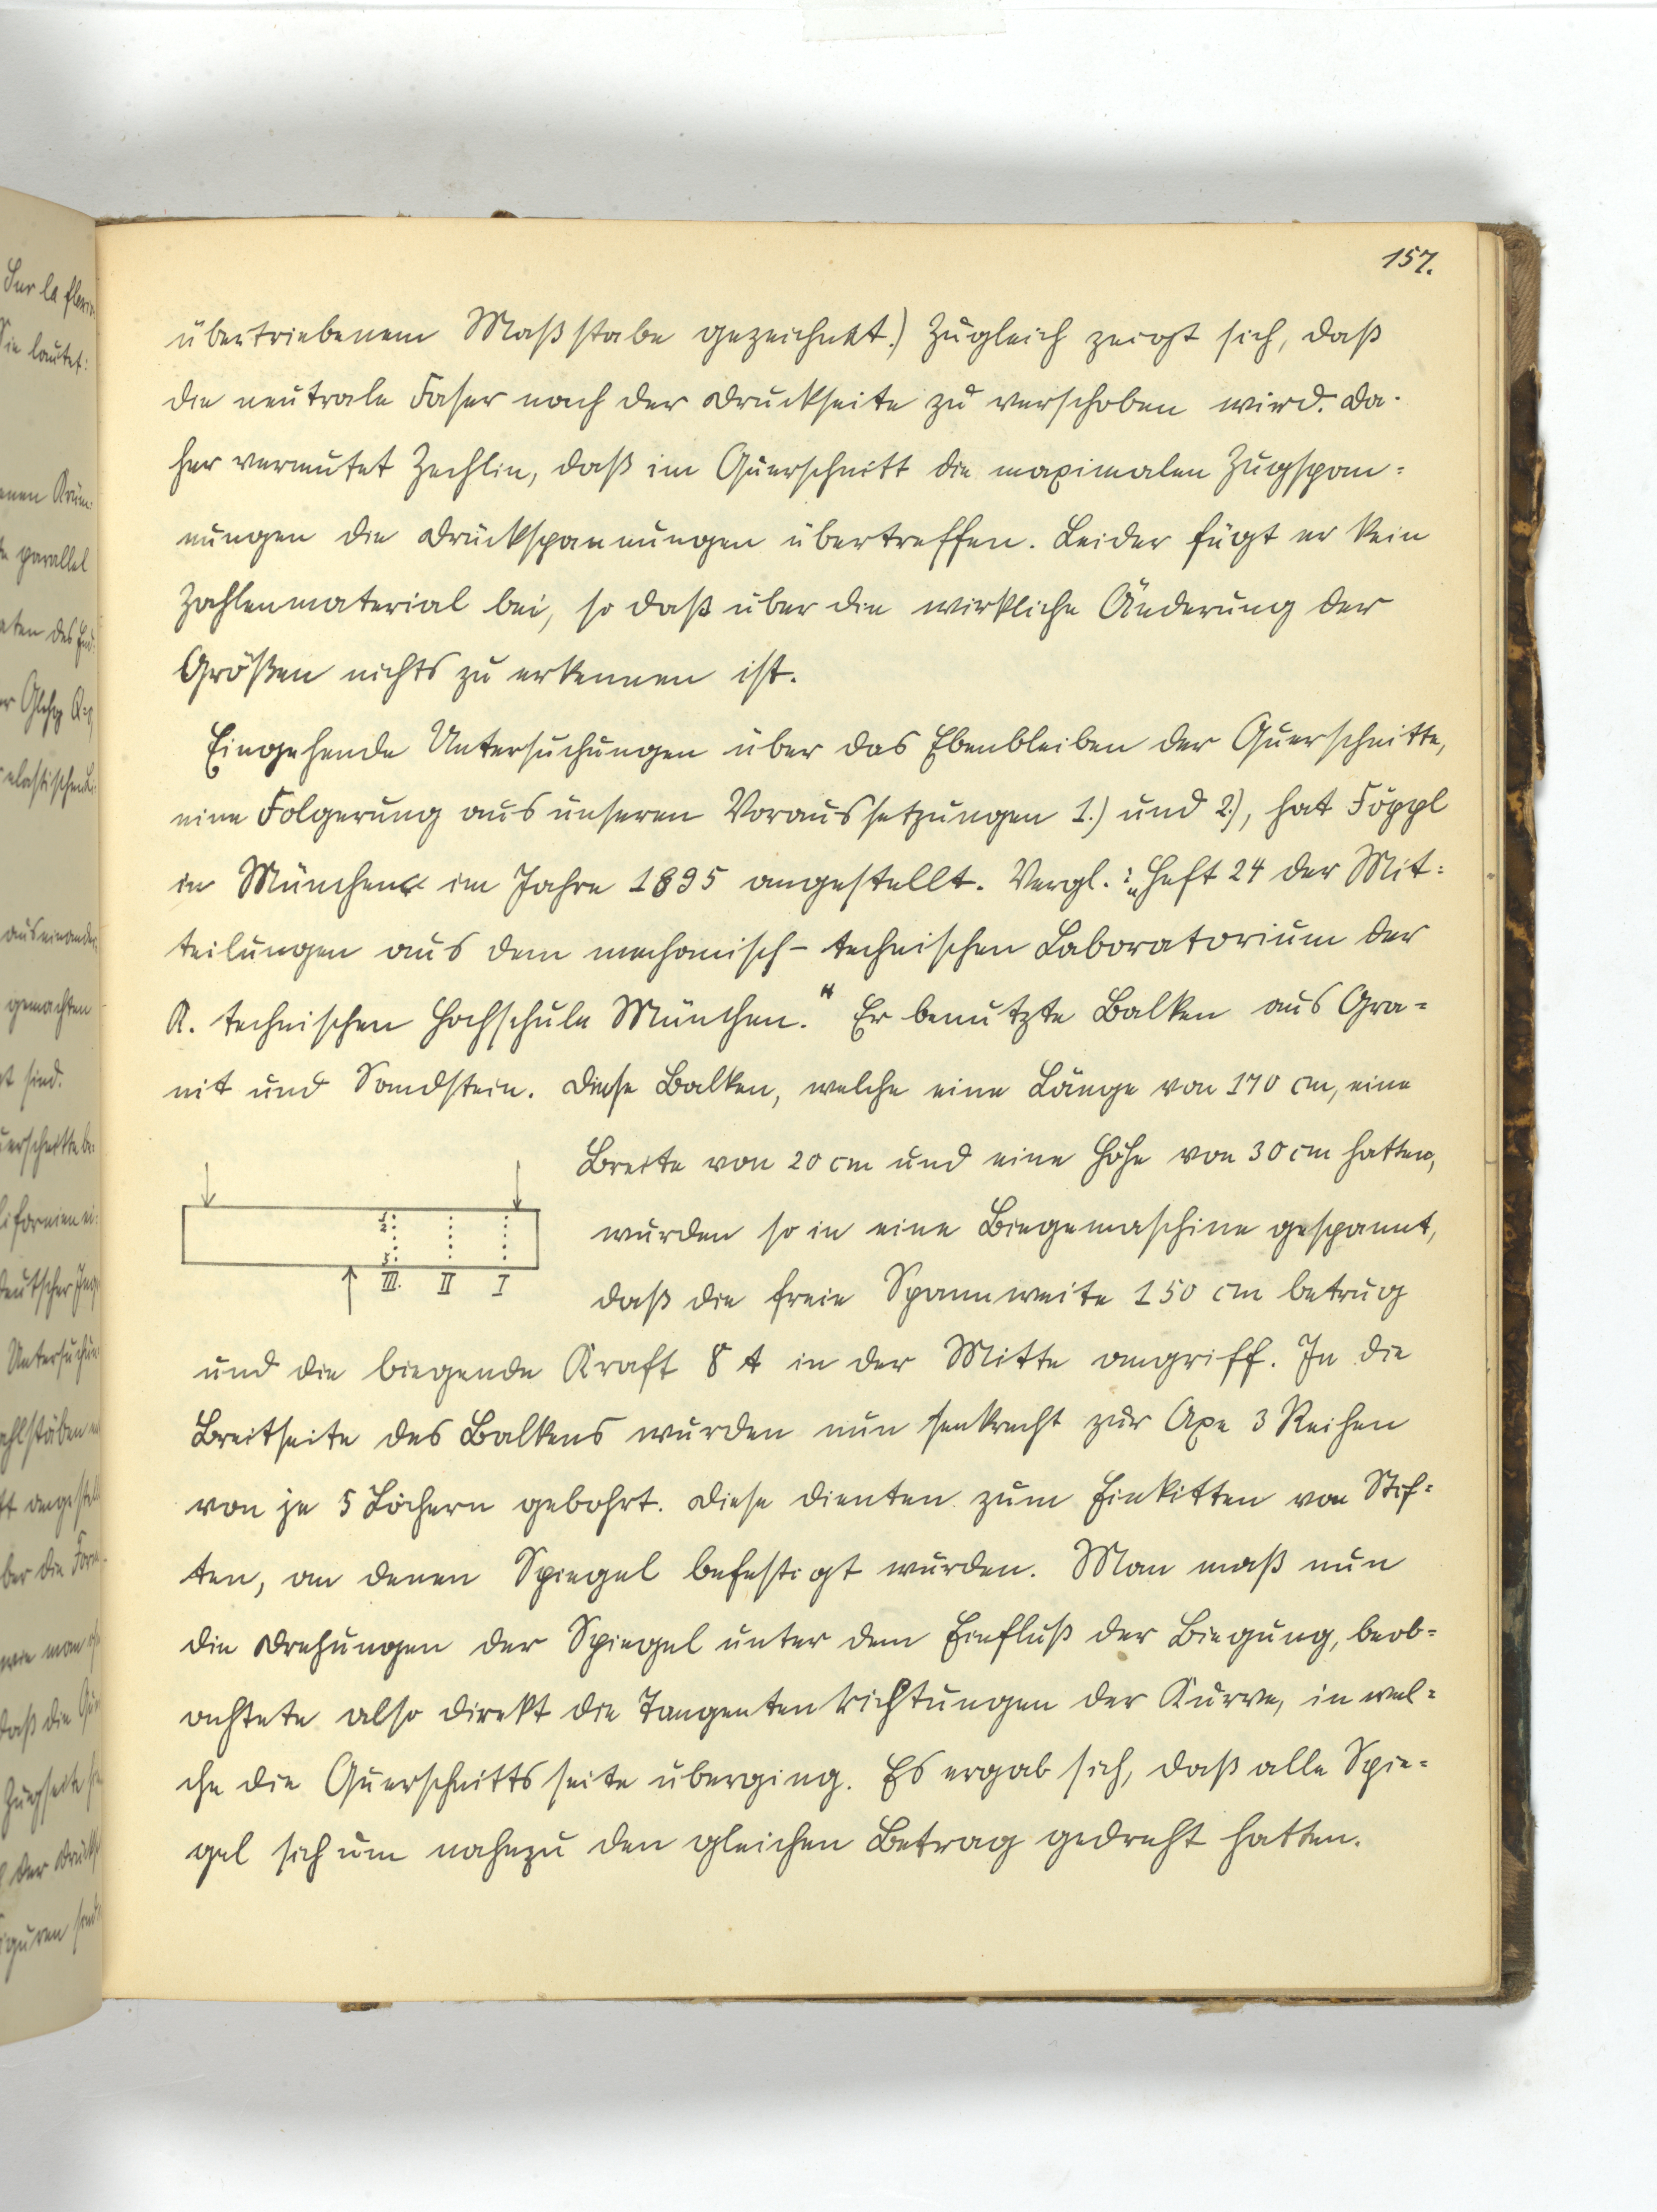 157.
übertriebenem Maßstabe gezeichnet.) Zugleich zeigt sich, daß
die neutrale Faser nach der Druckseite zu verschoben wird. Da-
her vermutet Zechlin, daß im Querschnitt die maximalen Zugspan-
nungen die Druckspannungen übertreffen. Leider fügt er kein
Zahlenmaterial bei, so daß über die wirkliche Änderung der
Größen nichts zu erkennen ist.
Eingehende Untersuchungen über das Ebenbleiben der Querschnitte,
eine Folgerung aus unseren Voraussetzungen 1.) und 2.), hat Föppl
in München im Jahre 1895 angestellt. Vergl.: „Heft 24 der Mit-
teilungen aus dem mechanisch-technischen Laboratorium der
K. technischen Hochschule München.“ Er benutzte Balken aus Gra-
nit und Sandstein. Diese Balken, welche eine Länge von 170 cm, eine
Breite von 20 cm und eine Höhe von 30 cm hatten,
wurden so in eine Biegemaschine gespannt,
daß die freie Spannweite 150 cm betrug
1
2
5
III. II I
und die biegende Kraft 8 t in der Mitte angriff. In die
Breitseite des Balkens wurden nun senkrecht zur Axe 3 Reihen
von je 5 Löchern gebohrt. Diese dienten zum Einkitten von Stif-
ten, an denen Spiegel befestigt wurden. Man maß nun
die Drehungen der Spiegel unter dem Einfluß der Biegung, beob-
achtete also direkt die Tangentenrichtungen der Kurve, in wel-
che die Querschnittsseite überging. Es ergab sich, daß alle Spie-
gel sich um nahezu den gleichen Betrag gedreht hatten.